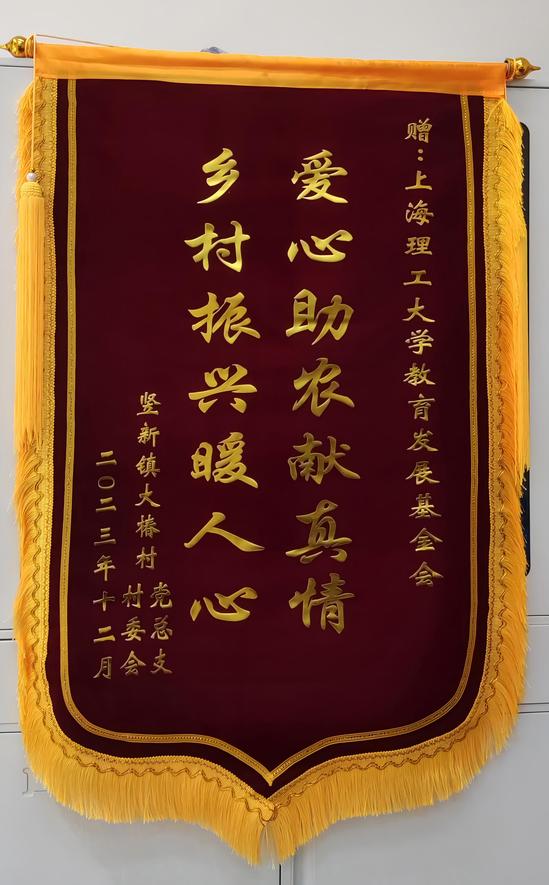 赠：上海理工大学教育发展基金会
爱心助农献真情
乡村振兴暖人心
竖新镇大椿村
党总支
村委会
二〇二三年十二月